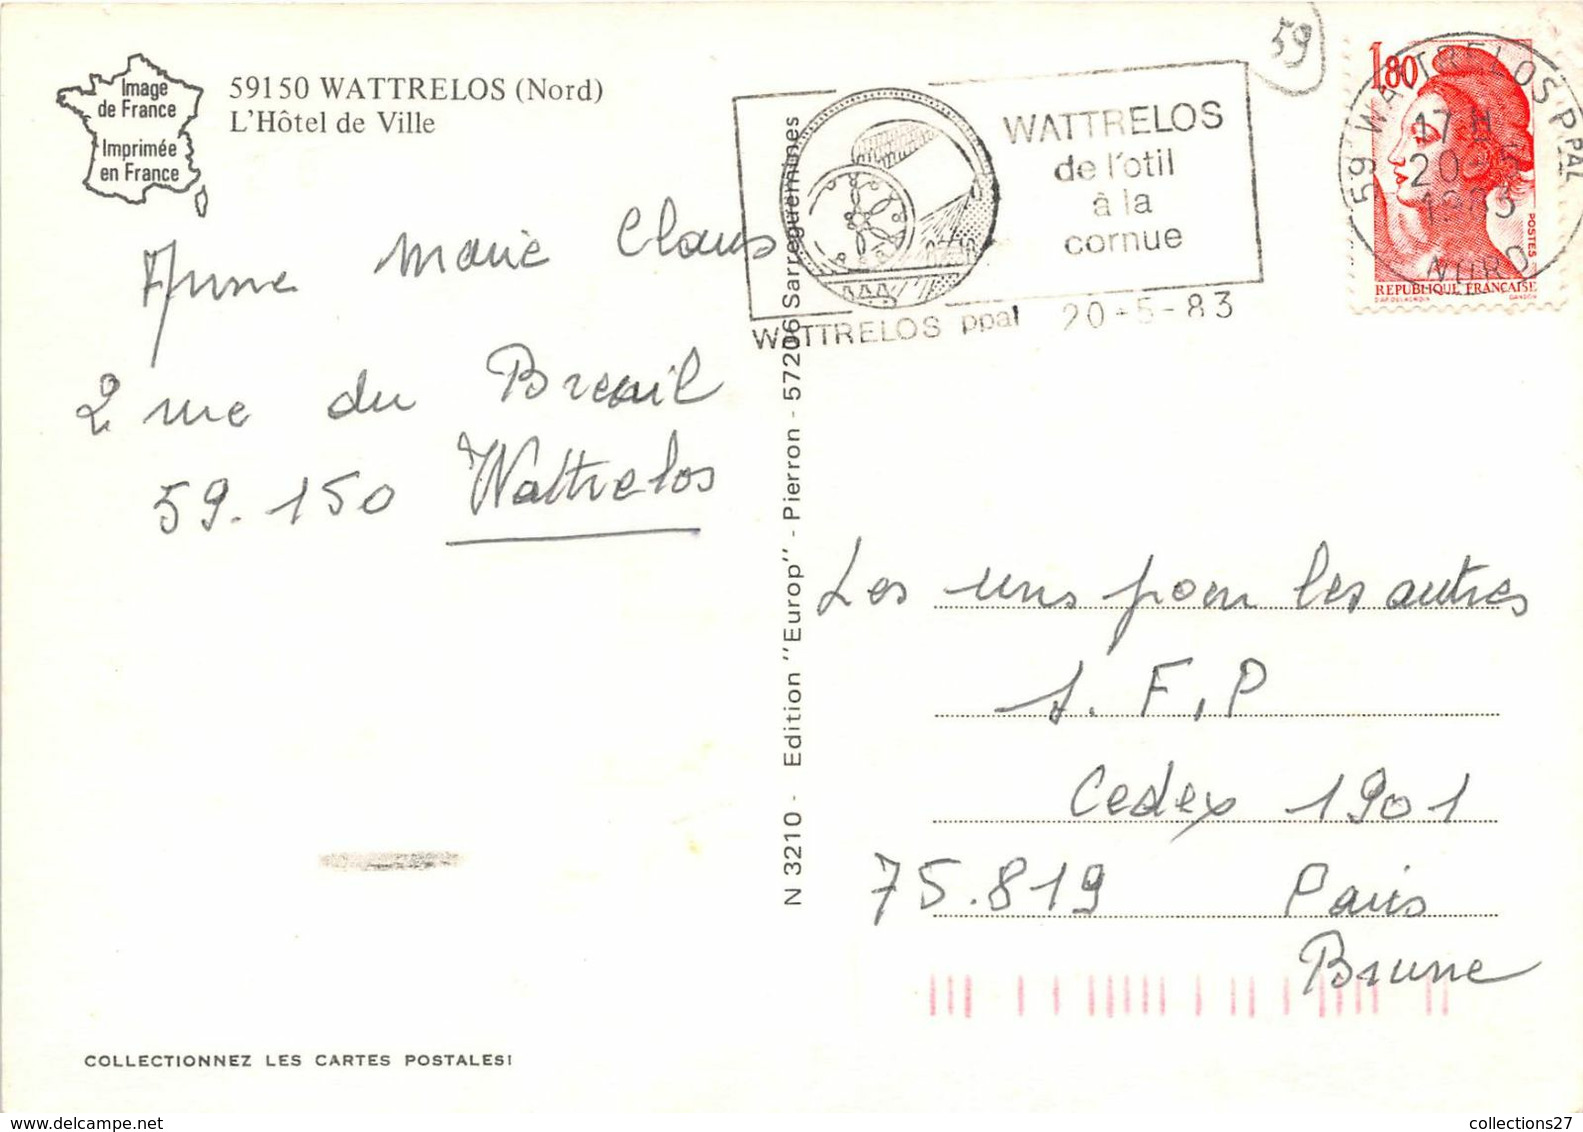 Image
de France
Imprimée
en France
59150 WATTRELOS (Nord)
L'Hôtel de Ville
59
WATTRELOS
de l'otil
à la
cornue
WATTRELOS ppal 20-5-83
59 WATTRELOS PPAL
17 H
20-5
1983
NORD
1,80
POSTES
REPUBLIQUE FRANÇAISE
Anne Marie Claus
2 rue du Breuil
59.150 Wattrelos
N 3210 - Edition "Europ" - Pierron - 57206 Sarreguemines
Les uns pour les autres
S.F.P
Cedex 1901
75.819 Paris
Brune
COLLECTIONNEZ LES CARTES POSTALES!
https://www.delcampe.net
collections27